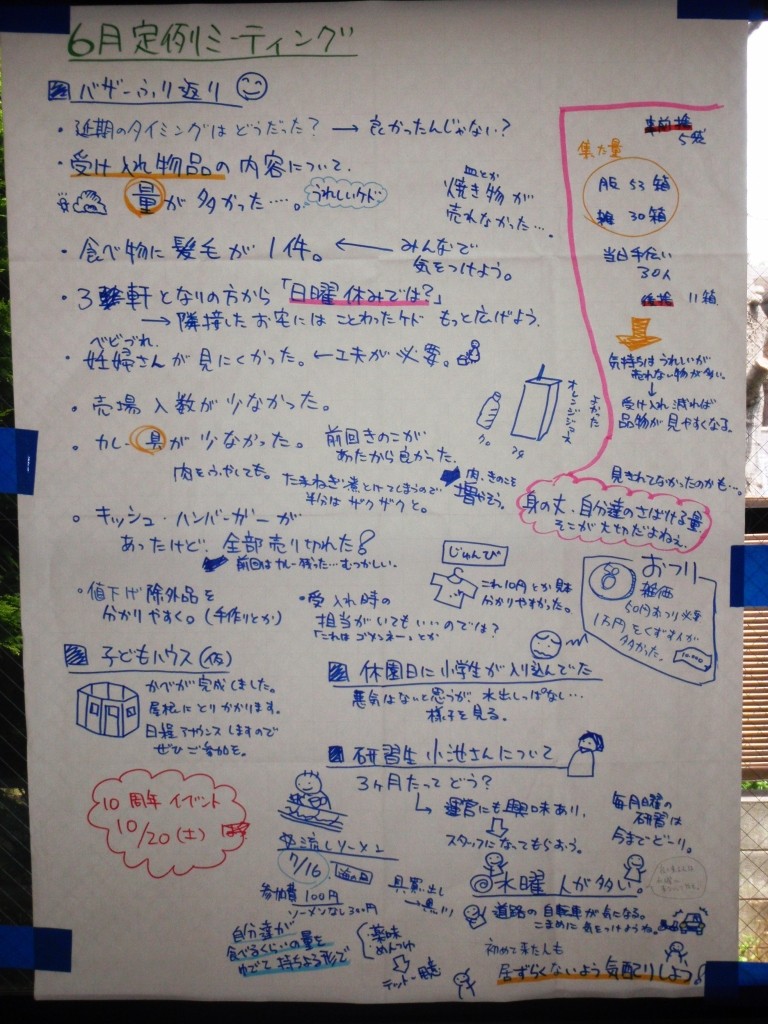 6月定例ミーティング
バザーふり返り
・近期のタイミングはどうだった? → 良かったんじゃない?
・受け入れ物品の内容について.
量が多かった….。
うれしいケド
皿とか
焼き物が
売れなかった….
・食べ物に髪毛が1件。 ← みんなで
気をつけよう。
・3軒となりの方から「日曜休みでは?」
→ 隣接したお宅にはことわったケド もっと広げよう.
ベビづれ.
・妊婦さんが見にくかった。←工夫が必要。
・売場入数が少なかった。
・カレー具が少なかった。
前回きのこが
あったから良かった.
肉をふやしても。
たまねぎ煮とけてしまうので
半分はザクザクと。
肉・きのこを
増やそう。
オレンジジュース
よかった
。キッシュ・ハンバーガーが
あったけど、全部売り切れた!
前回はカレー残った…むつかしい。
・値下げ除外品を
分かりやすく。(手作りとか)
・受入れ時の
担当がいてもいいのでは?
「これはゴメンネー」とか
じゅんび
これ10円とか見本
分かりやすかった。
5袋
集た量
服 53箱
雑 30箱
当日手伝い
30人
11箱
気持ちはうれしいが
売れない物が多い。
↓
受け入れ減れば
品物が見やすくなる。
見きれてなかったのかも…。
身の丈、自分達のさばける量
そこが大切だよねぇ.
おつり
雑価
50円おつり必要
1万円をくずす人が
多かった。
10,000
子どもハウス(仮)
かべが完成しました。
屋根にとりかかります。
日程アナウンスしますので
ぜひご参加を。
休園日に小学生が入り込んでた
悪気はないと思うが、水出しっぱなし…
様子を見る。
研習生小池さんについて
3ヶ月たってどう?
運営にも興味あり.
スタッフになってもらおう。
毎月日曜の
研習は
今までどーり。
10周年イベント
10/20(土)
流しソーメン
7/16
海の日
参加費100円
ソーメンなし300円
具買出し
自分達が
食べるくらいの量を
ゆでて持ちよる形で
薬味
めんつゆ
水曜人が多い。
道路の自転車が気になる。
こまめに気をつけようね。
初めて来た人も
居ずらくないよう気配りしよう